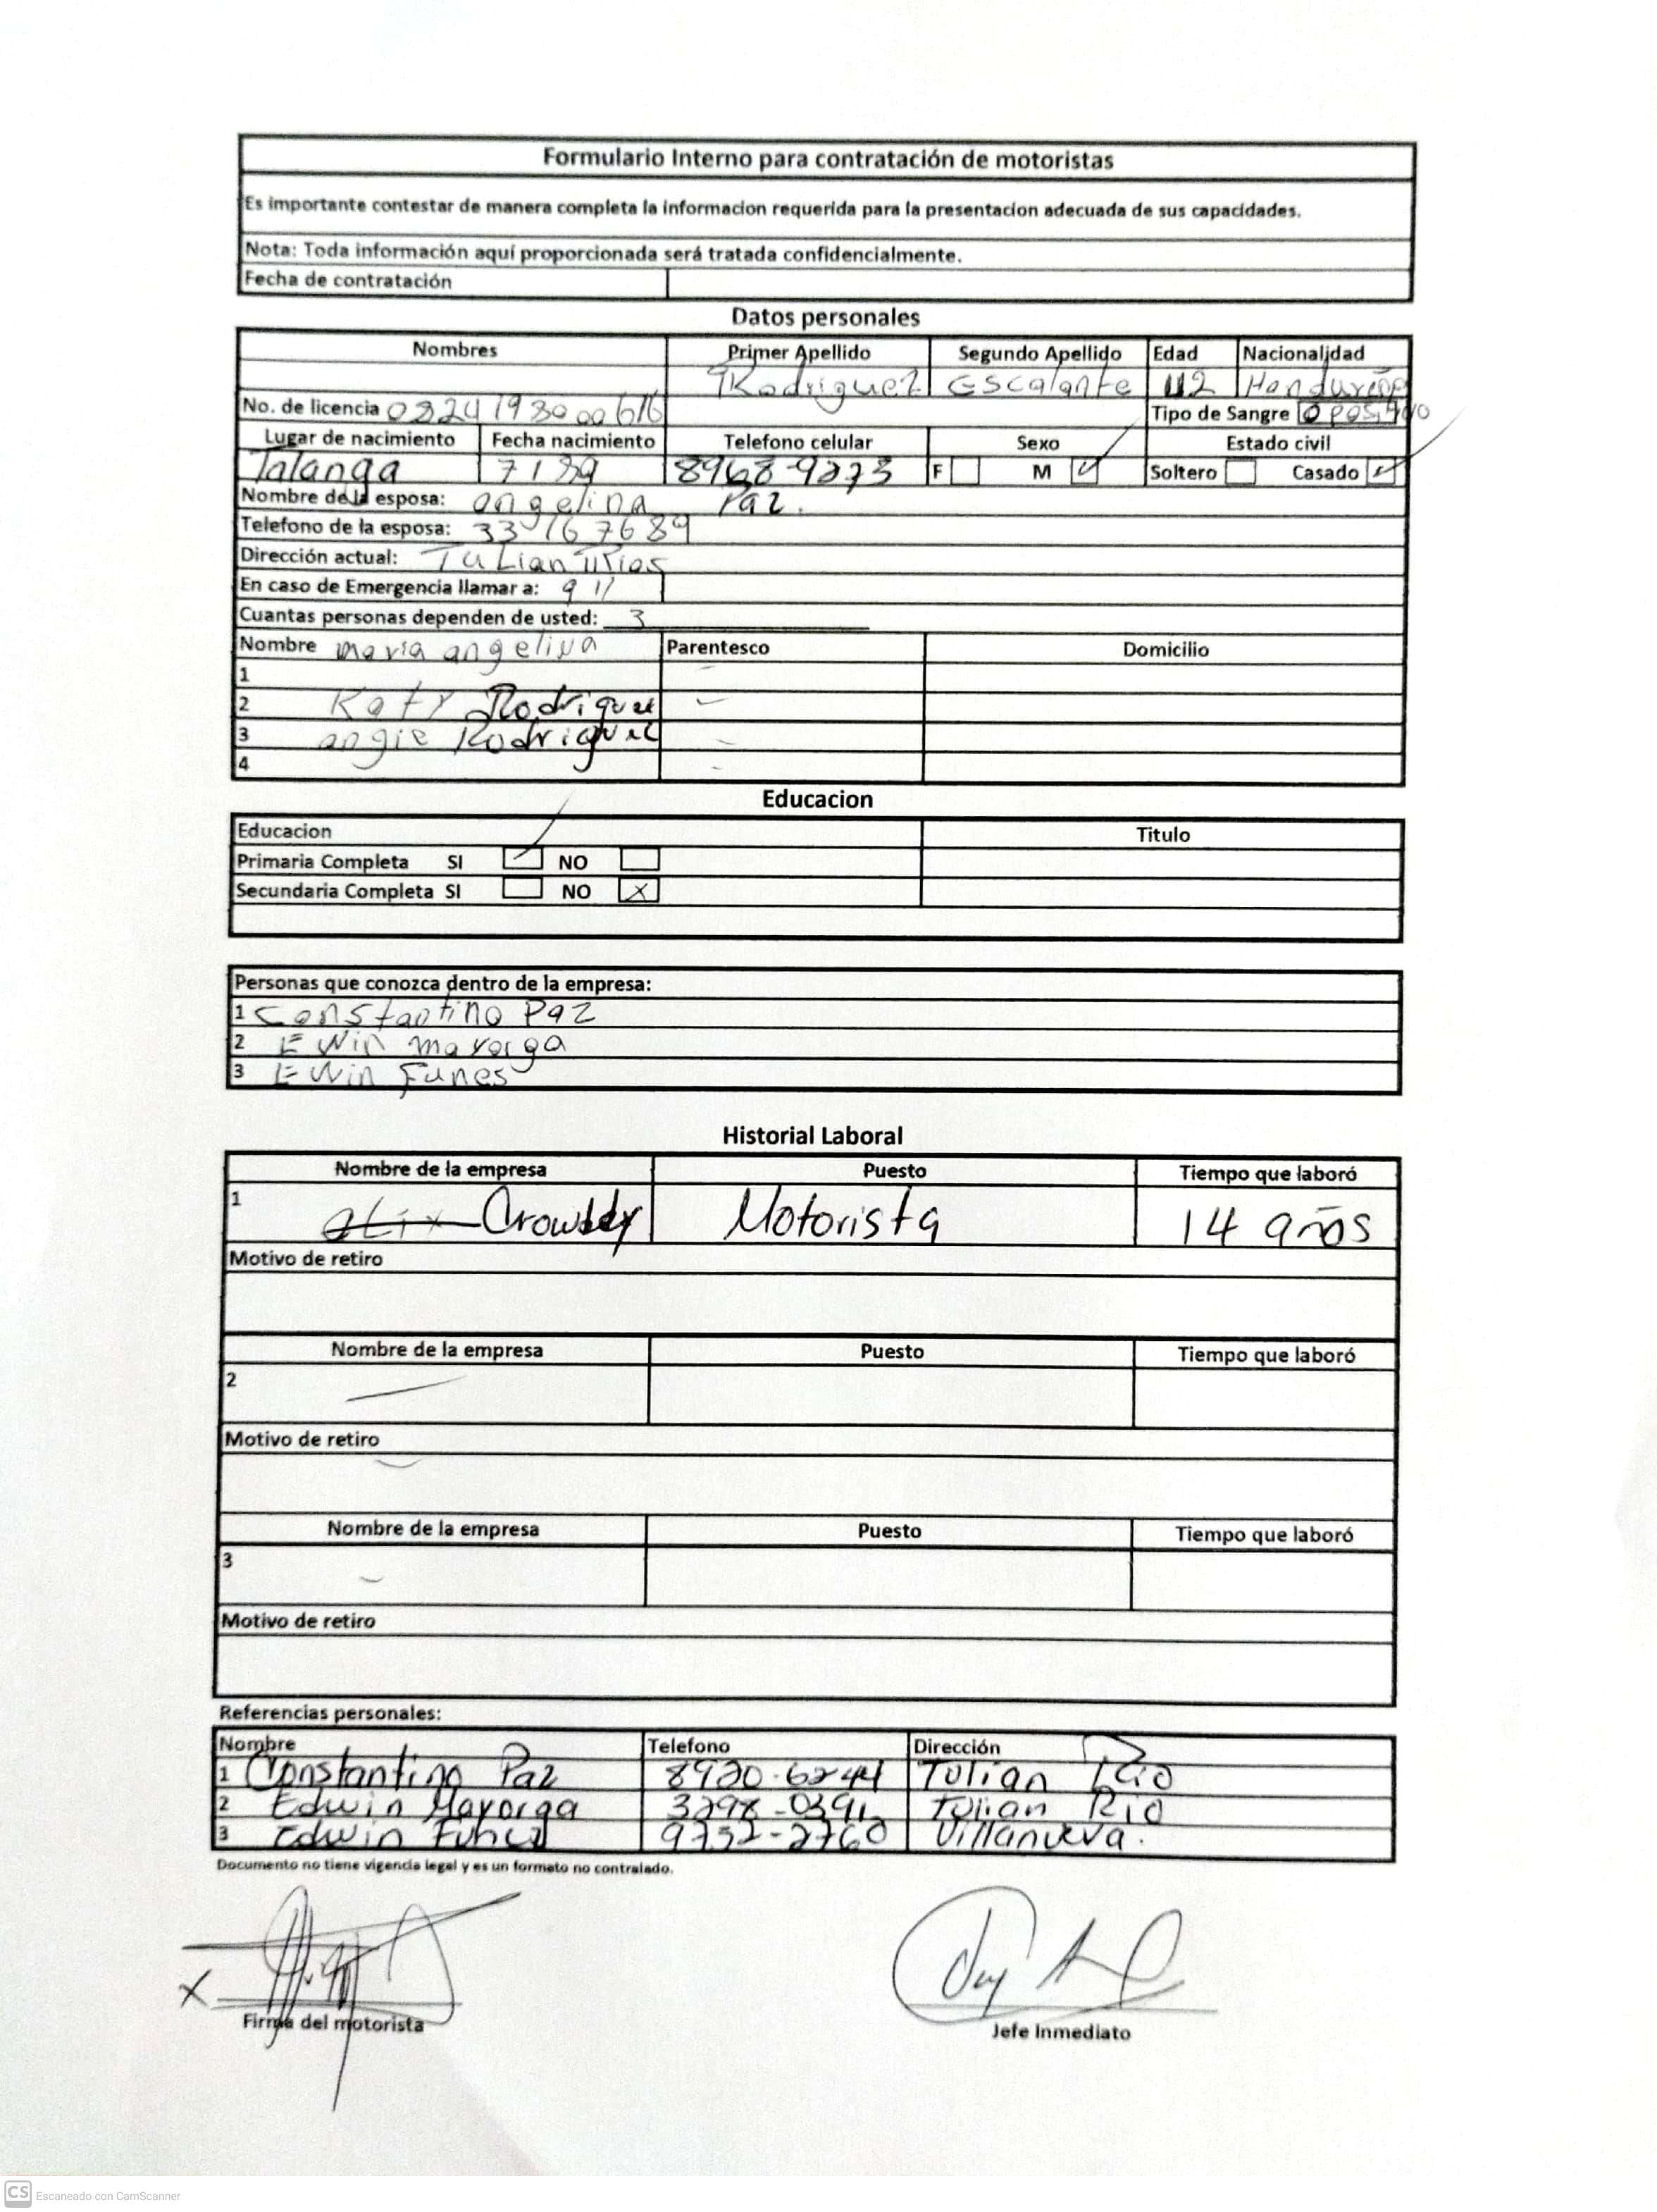 Formulario Interno para contratación de motoristas
Es importante contestar de manera completa la informacion requerida para la presentacion adecuada de sus capacidades.
Nota: Toda información aquí proporcionada será tratada confidencialmente.
Fecha de contratación
Datos personales
Nombres Primer Apellido Segundo Apellido Edad Nacionalidad
Rodriguez Escalante 42
No. de licencia Tipo de Sangre O positivo
Lugar de nacimiento Fecha nacimiento Telefono celular Sexo Estado civil
Talanga 8968-9273 F M Soltero Casado
Nombre de la esposa: angelina Paz.
Telefono de la esposa: 33167689
Dirección actual:
En caso de Emergencia llamar a: 911
Cuantas personas dependen de usted: 3
Nombre maria angelina Parentesco Domicilio
1
2 Katy Rodriguez
3 angie Rodriguez
4
Educacion
Educacion Titulo
Primaria Completa SI NO
Secundaria Completa SI NO X
Personas que conozca dentro de la empresa:
1 Constantino Paz
2 EWin mayorga
3 EWin Funes
Historial Laboral
Nombre de la empresa Puesto Tiempo que laboró
1 Motorista 14 años
Motivo de retiro
Nombre de la empresa Puesto Tiempo que laboró
2
Motivo de retiro
Nombre de la empresa Puesto Tiempo que laboró
3
Motivo de retiro
Referencias personales:
Nombre Telefono Dirección
1 Constantino Paz 8920-6244 Tulian Rio
2 Edwin Mayorga Tulian Rio
3 Edwin Funez 9752-2760 Villanueva.
Documento no tiene vigencia legal y es un formato no contralado.
X
Firma del motorista Jefe Inmediato
CS Escaneado con CamScanner